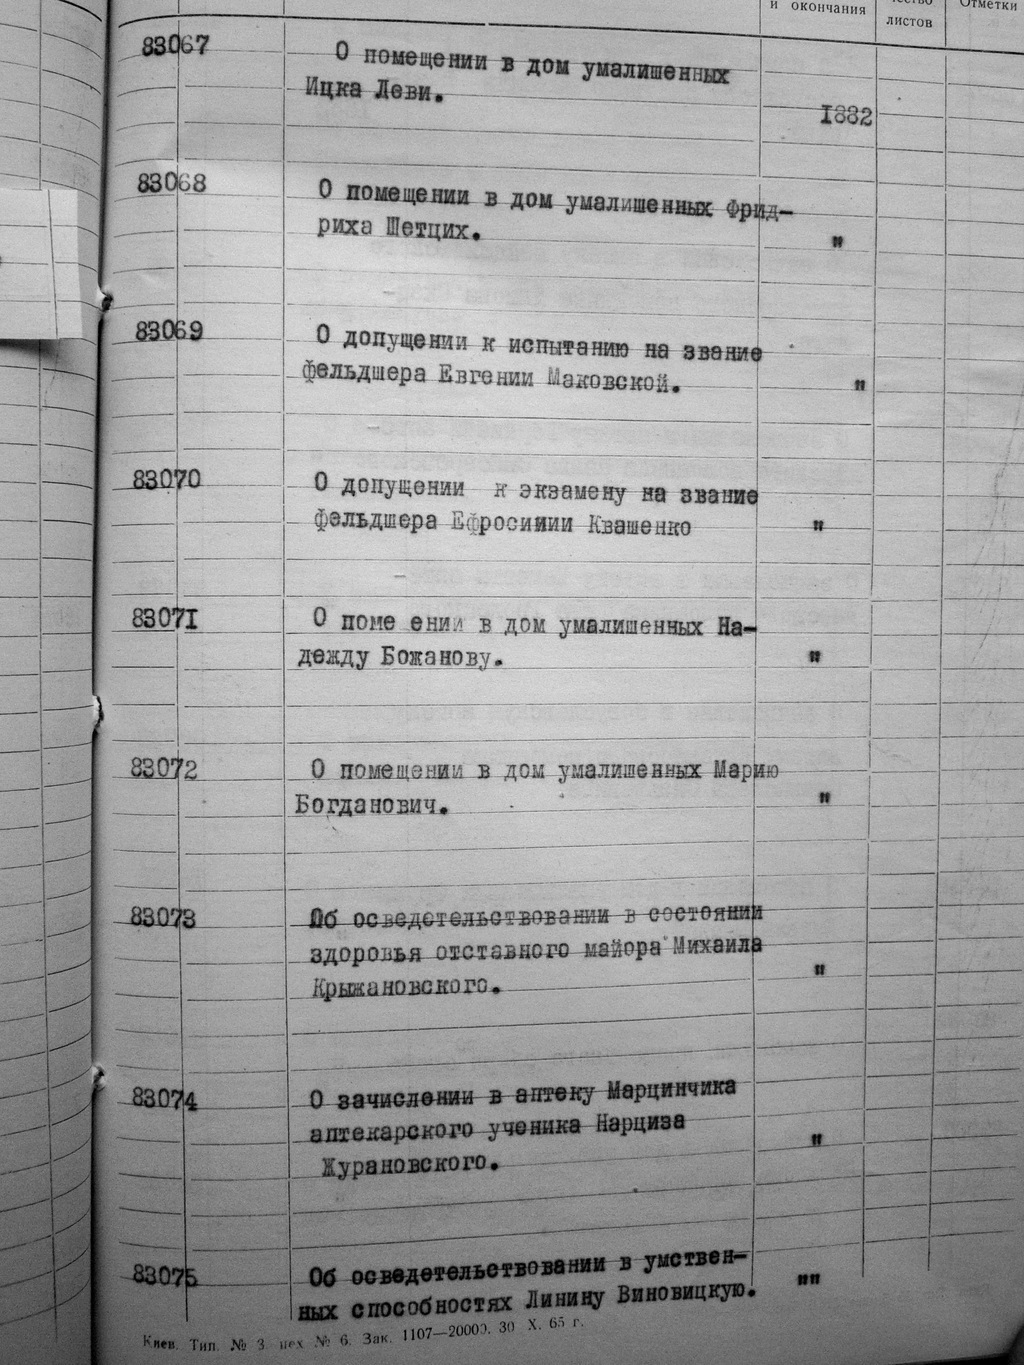 и окончания
листов
Отметки
83067
О помещении в дом умалишенных
Ицка Леви.
1882
83068
О помещении в дом умалишенных Фрид-
риха Шетцих.
"
83069
О допущении к испытанию на звание
фельдшера Евгении Маковской.
"
83070
О допущении к экзамену на звание
фельдшера Ефросинии Квашенко
"
83071
О поме ении в дом умалишенных На-
дежду Божанову.
"
83072
О помещении в дом умалишенных Марию
Богданович.
"
83073
Об осведетельствовании в состоянии
здоровья отставного майора Михаила
Крыжановского.
"
83074
О зачислении в аптеку Марцинчика
аптекарского ученика Нарциза
Журановского.
"
83075
Об осведетельствовании в умствен-
ных способностях Линину Виновицкую.
""
Киев. Тип. № 3 цех № 6. Зак. 1107—20000. 30 X. 65 г.